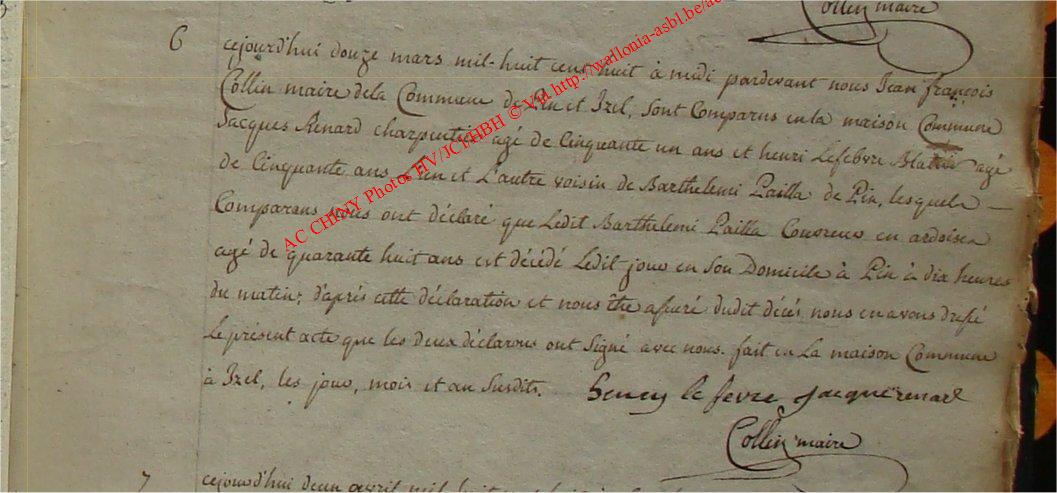 Collin maire
6 cejourd'hui douze mars mil-huit cent huit à midi pardevant nous Jean françois
Collin maire dela Commune de Pin et Izel, sont Comparus en la maison Commune
Jacques Renard charpentier agé de Cinquante un ans et henri Lefebvre agé
de Cinquante ans et L'autre voisin de Barthelemi Pailla de Pin, lesquels
Comparans nous ont déclaré que Ledit Barthelemi Pailla Couvreur en ardoises
agé de quarante huit ans est décédé Ledit jour en Son Domicile à Pin à dix heures
du matin; d'après cette déclaration et nous être assuré dudit décés, nous en avons dressé
Le présent acte que les deux déclarans ont Signé avec nous. fait en La maison Commune
à Izel, les jour, mois et an Susdits. henry le fevre Jacque renard
Collin maire
7 cejourd'hui deux avril mil huit
AC CHINY Photos HV/JCH/HBH © Via http://wallonia-asbl.be/ac